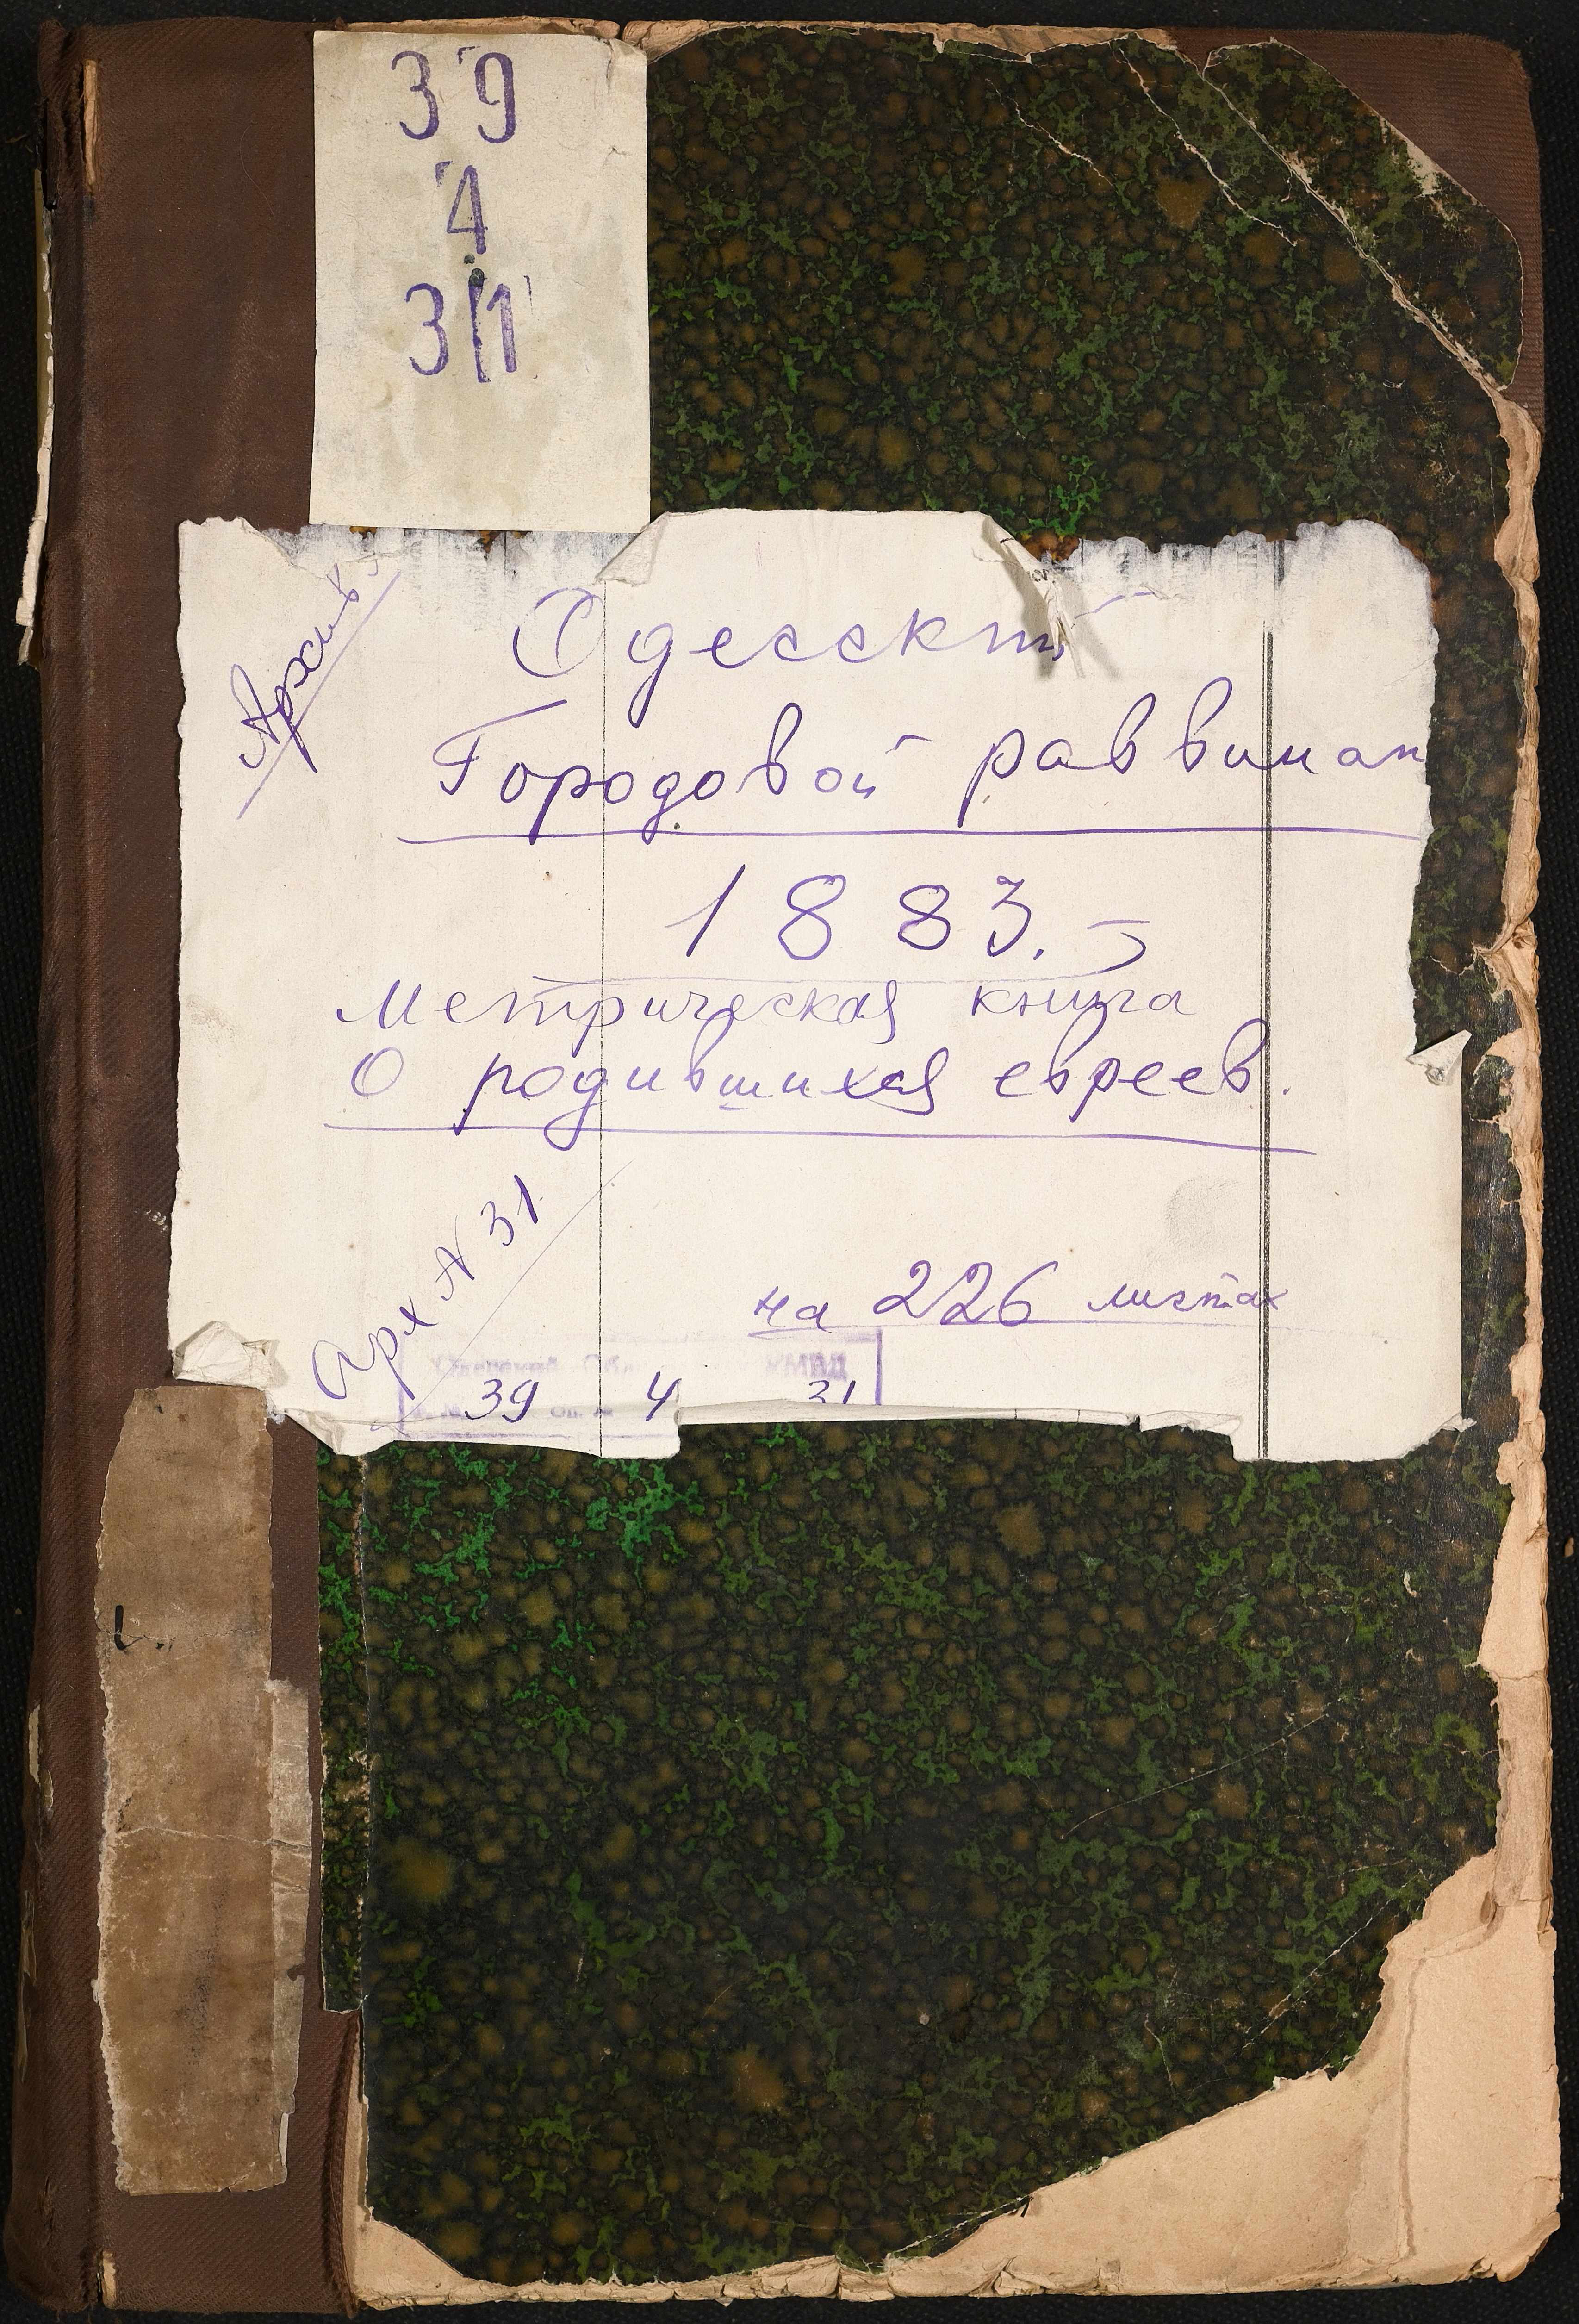 39
4
31
Архив
Одесский
Городовой раввинат
1883.
Метрическая книга
О родившихся евреев.
Арх N 31
на 226 листах
39 4 31